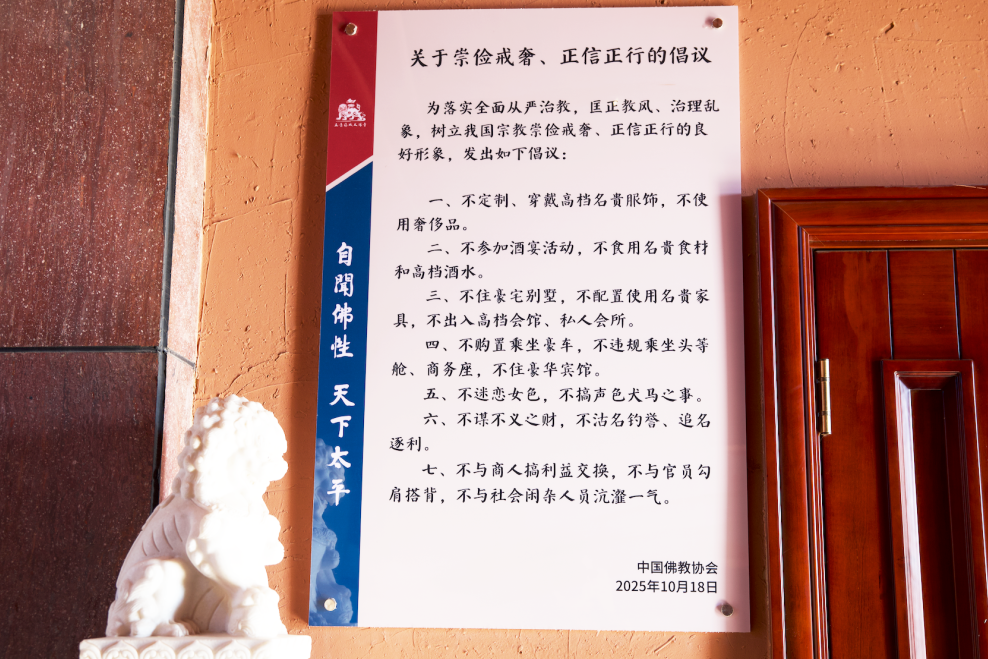 关于崇俭戒奢、正信正行的倡议
为落实全面从严治教，匡正教风、治理乱
象，树立我国宗教崇俭戒奢、正信正行的良
好形象，发出如下倡议：
一、不定制、穿戴高档名贵服饰，不使
用奢侈品。
二、不参加酒宴活动，不食用名贵食材
和高档酒水。
三、不住豪宅别墅，不配置使用名贵家
具，不出入高档会馆、私人会所。
四、不购置乘坐豪车，不违规乘坐头等
舱、商务座，不住豪华宾馆。
五、不迷恋女色，不搞声色犬马之事。
六、不谋不义之财，不沽名钓誉、追名
逐利。
七、不与商人搞利益交换，不与官员勾
肩搭背，不与社会闲杂人员沆瀣一气。
中国佛教协会
2025年10月18日
自闻佛性 天下太平